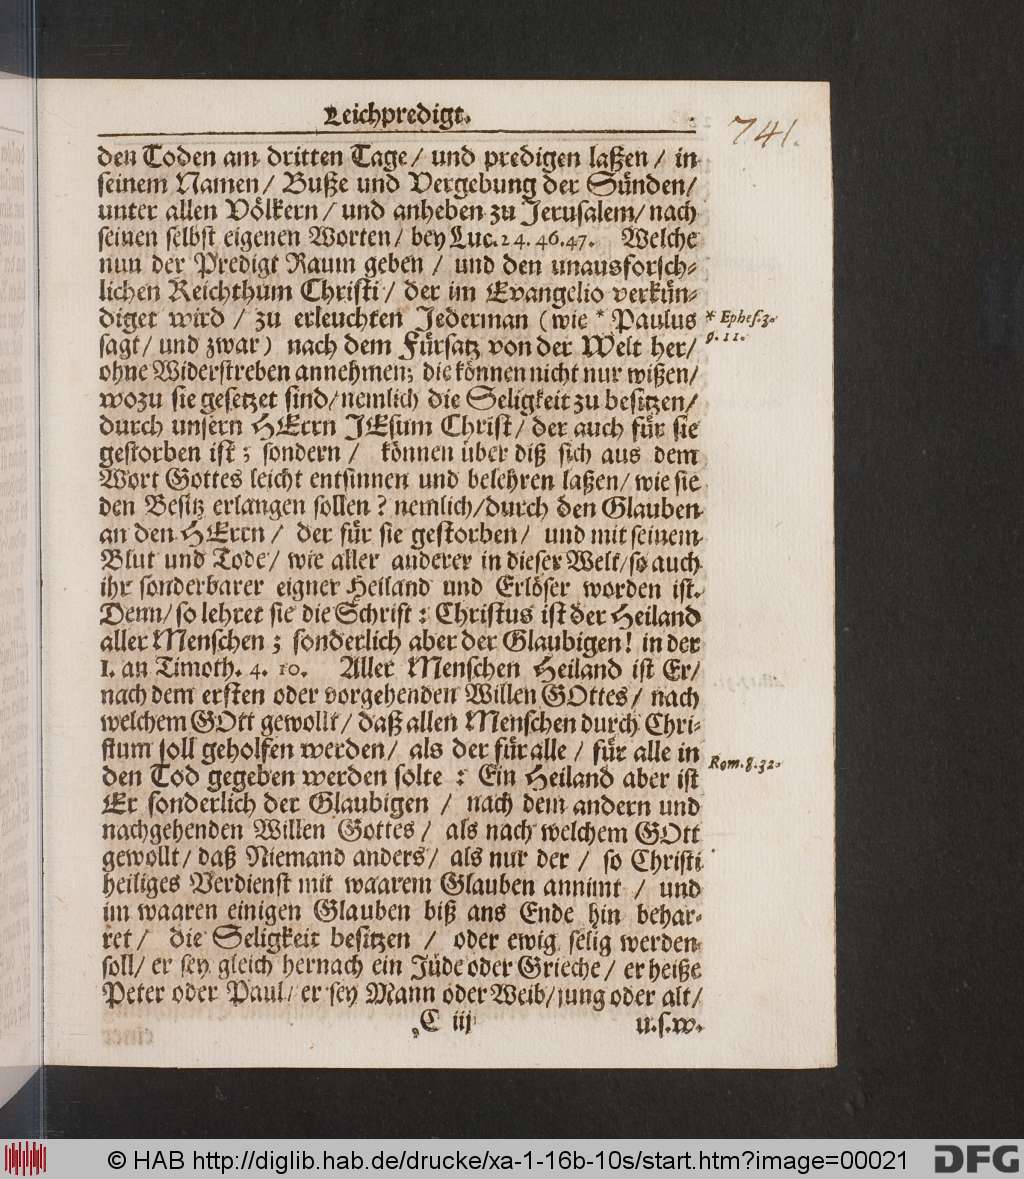 Leichpredigt.
741.
den Toden am dritten Tage/ und predigen laßen/ in
seinem Namen/ Buße und Vergebung der Sünden/
unter allen Völkern/ und anheben zu Jerusalem/ nach
seinen selbst eigenen Worten/ bey Luc. 24. 46. 47. Welche
nun der Predigt Raum geben/ und den unausforsch-
lichen Reichthum Christi/ der im Evangelio verkün-
diget wird/ zu erleuchten Jederman (wie * Paulus
* Ephes. 3.
sagt/ und zwar) nach dem Fürsatz von der Welt her/
9. 11.
ohne Widerstreben annehmen; die können nicht nur wißen/
wozu sie gesetzet sind/ nemlich die Seligkeit zu besitzen/
durch unsern HErrn JEsum Christ/ der auch für sie
gestorben ist; sondern/ können über diß sich aus dem
Wort Gottes leicht entsinnen und belehren laßen/ wie sie
den Besitz erlangen sollen? nemlich/ durch den Glauben
an den HErrn/ der für sie gestorben/ und mit seinem
Blut und Tode/ wie aller anderer in dieser Welt/ so auch
ihr sonderbarer eigner Heiland und Erlöser worden ist.
Denn/ so lehret sie die Schrift: Christus ist der Heiland
aller Menschen; sonderlich aber der Glaubigen! in der
1. an Timoth. 4. 10. Aller Menschen Heiland ist Er/
nach dem ersten oder vorgehenden Willen GOttes/ nach
welchem GOtt gewollt/ daß allen Menschen durch Chri-
stum soll geholfen werden/ als der für alle/ für alle in
Rom. 8. 32.
den Tod gegeben werden solte: Ein Heiland aber ist
Er sonderlich der Glaubigen/ nach dem andern und
nachgehenden Willen Gottes/ als nach welchem GOtt
gewollt/ daß Niemand anders/ als nur der/ so Christi
heiliges Verdienst mit waarem Glauben annimt/ und
im waaren einigen Glauben biß ans Ende hin behar-
ret/ die Seligkeit besitzen/ oder ewig selig werden
soll/ er sey gleich hernach ein Jüde oder Grieche/ er heiße
Peter oder Paul/ er sey Mann oder Weib/ jung oder alt/
C iij
u. s. w.
© HAB http://diglib.hab.de/drucke/xa-1-16b-10s/start.htm?image=00021
DFG